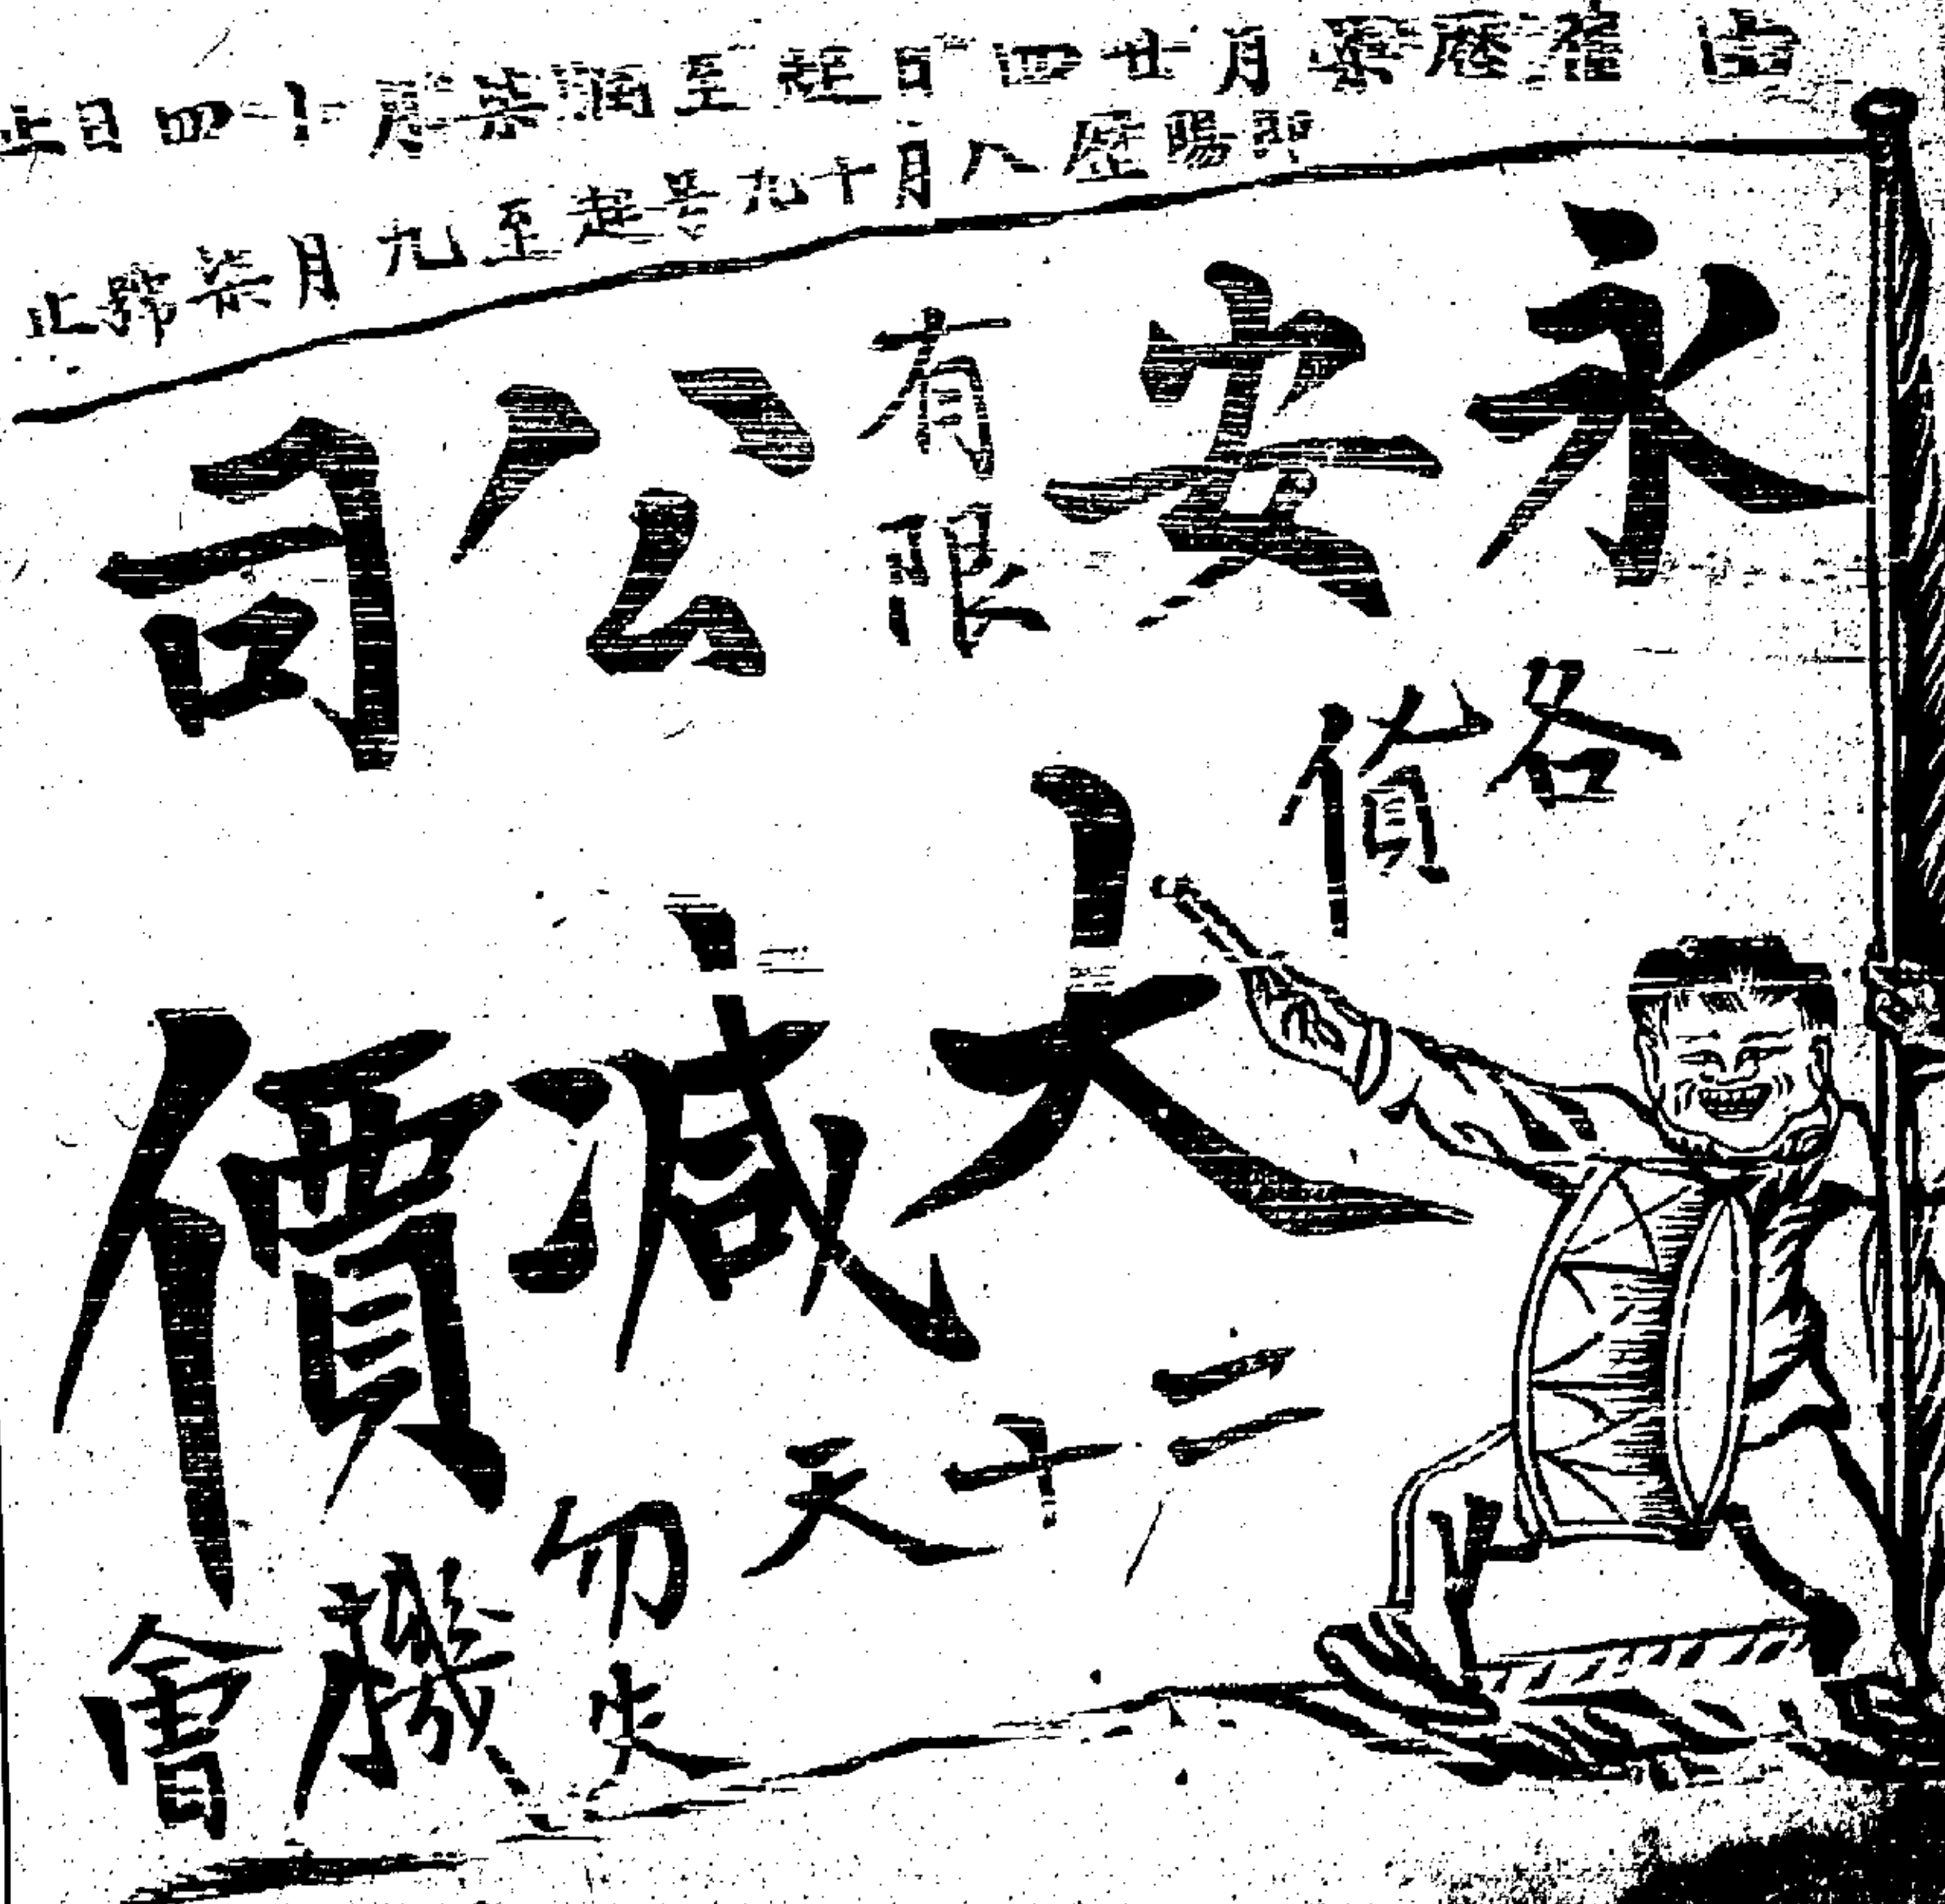 由舊歷柒月廿四日起至潤柒月十四日止
即陽歷八月十九号起至九月柒號止
永安有限公司
各貨
大减價
二十天
勿失機會